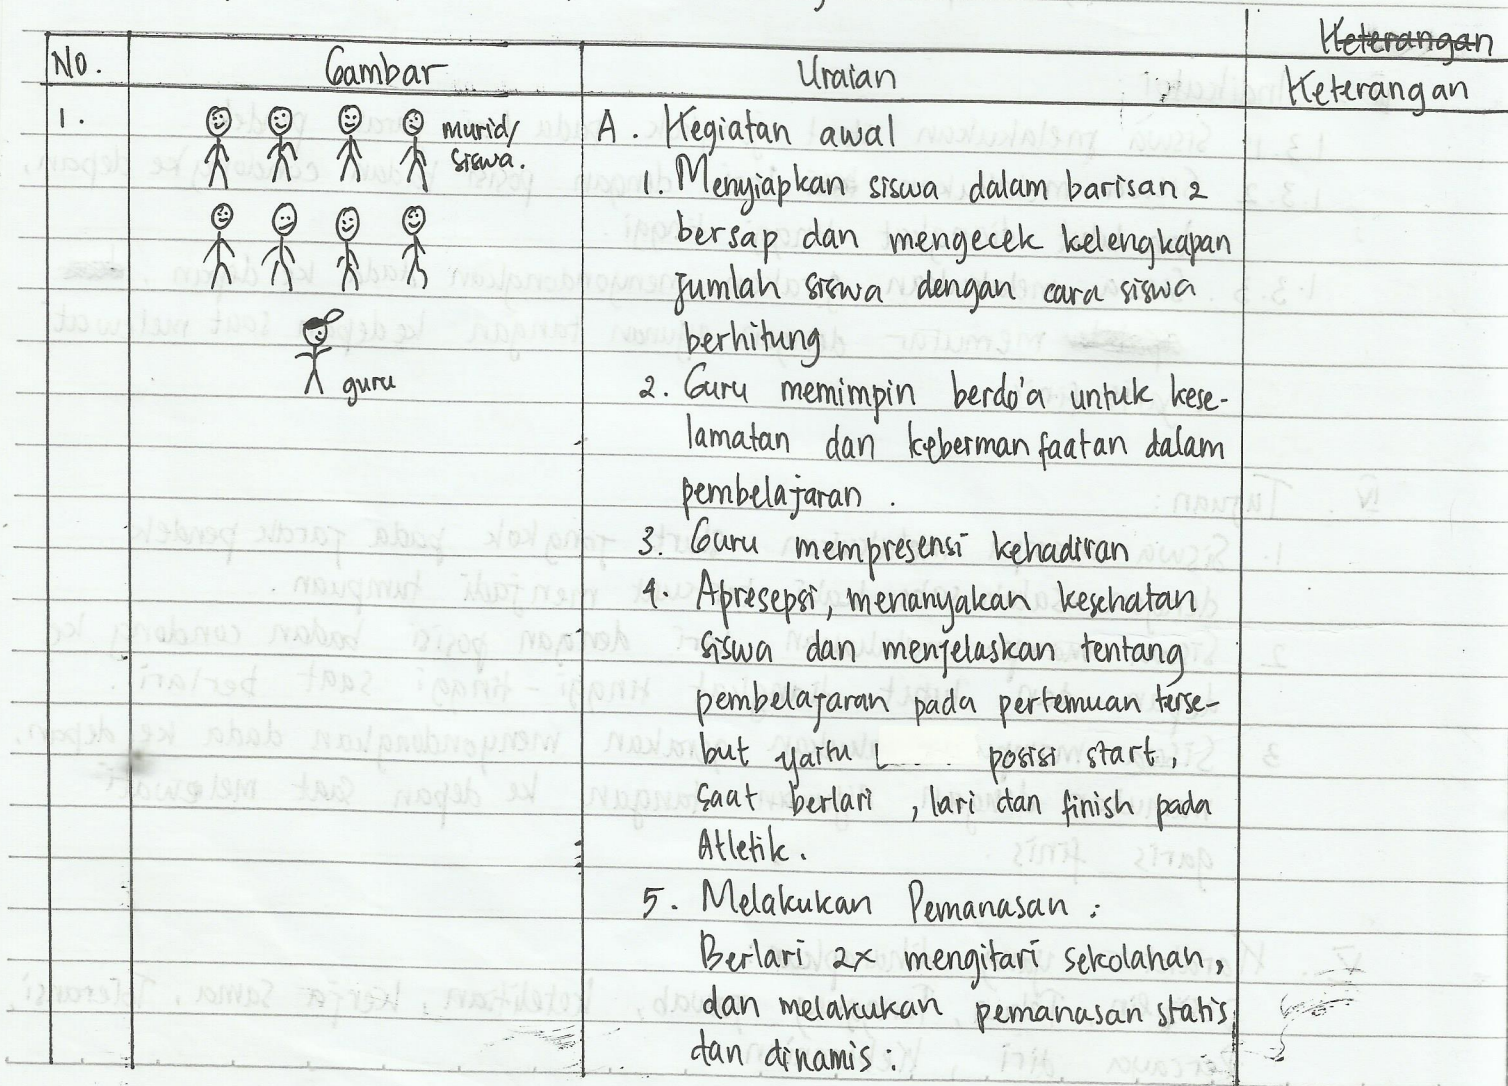 Keterangan
No. Gambar Uraian Keterangan
1.
murid/
siswa.
guru
A. Kegiatan awal
1. Menyiapkan siswa dalam barisan 2
bersap dan mengecek kelengkapan
jumlah siswa dengan cara siswa
berhitung
2. Guru memimpin berdo'a untuk kese-
lamatan dan kebermanfaatan dalam
pembelajaran .
3. Guru mempresensi kehadiran
4. Apresepsi, menanyakan kesehatan
siswa dan menjelaskan tentang
pembelajaran pada pertemuan terse-
but yaitu posisi start,
saat berlari , lari dan finish pada
Atletik.
5. Melakukan Pemanasan :
Berlari 2x mengitari sekolahan,
dan melakukan pemanasan statis
dan dinamis :